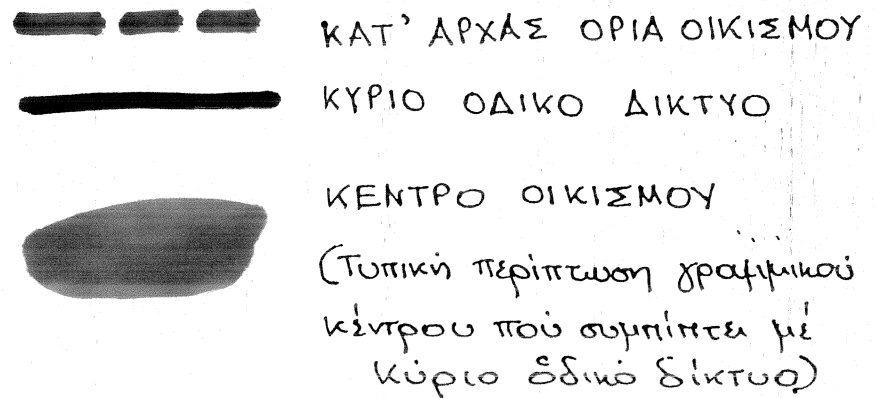 ΚΑΤ' ΑΡΧΑΣ ΟΡΙΑ ΟΙΚΙΣΜΟΥ
ΚΥΡΙΟ ΟΔΙΚΟ ΔΙΚΤΥΟ
ΚΕΝΤΡΟ ΟΙΚΙΣΜΟΥ
(Τυπική περίπτωση γραμμικού
κέντρου πού συμπίπτει μέ
κύριο ὁδικό δίκτυο)